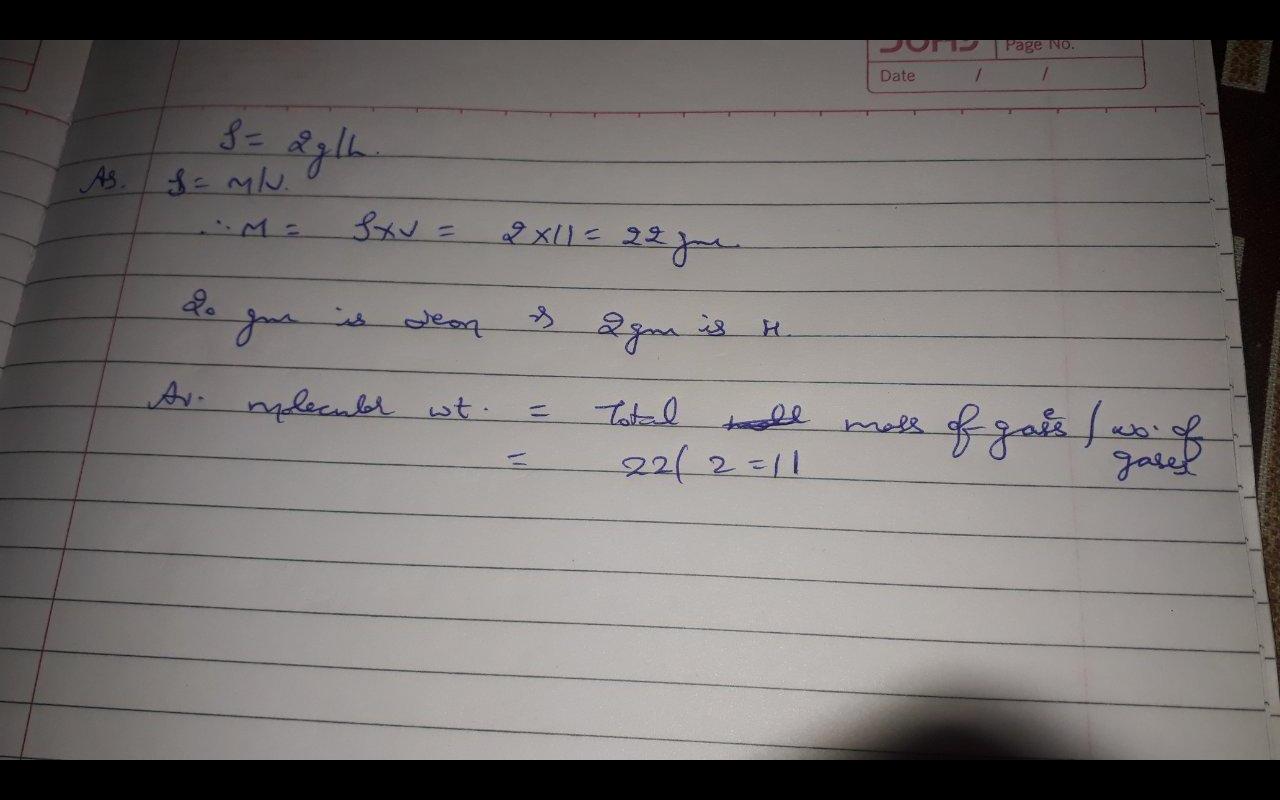 Page No.
Date / /
ρ = 2g/L.
As. ρ = M/V.
∴ M = ρ×V = 2×11 = 22 gm
20 gm is neon → 2gm is H.
Av. molecular wt. = Total mass of gases / no. of gases
= 22/2 = 11